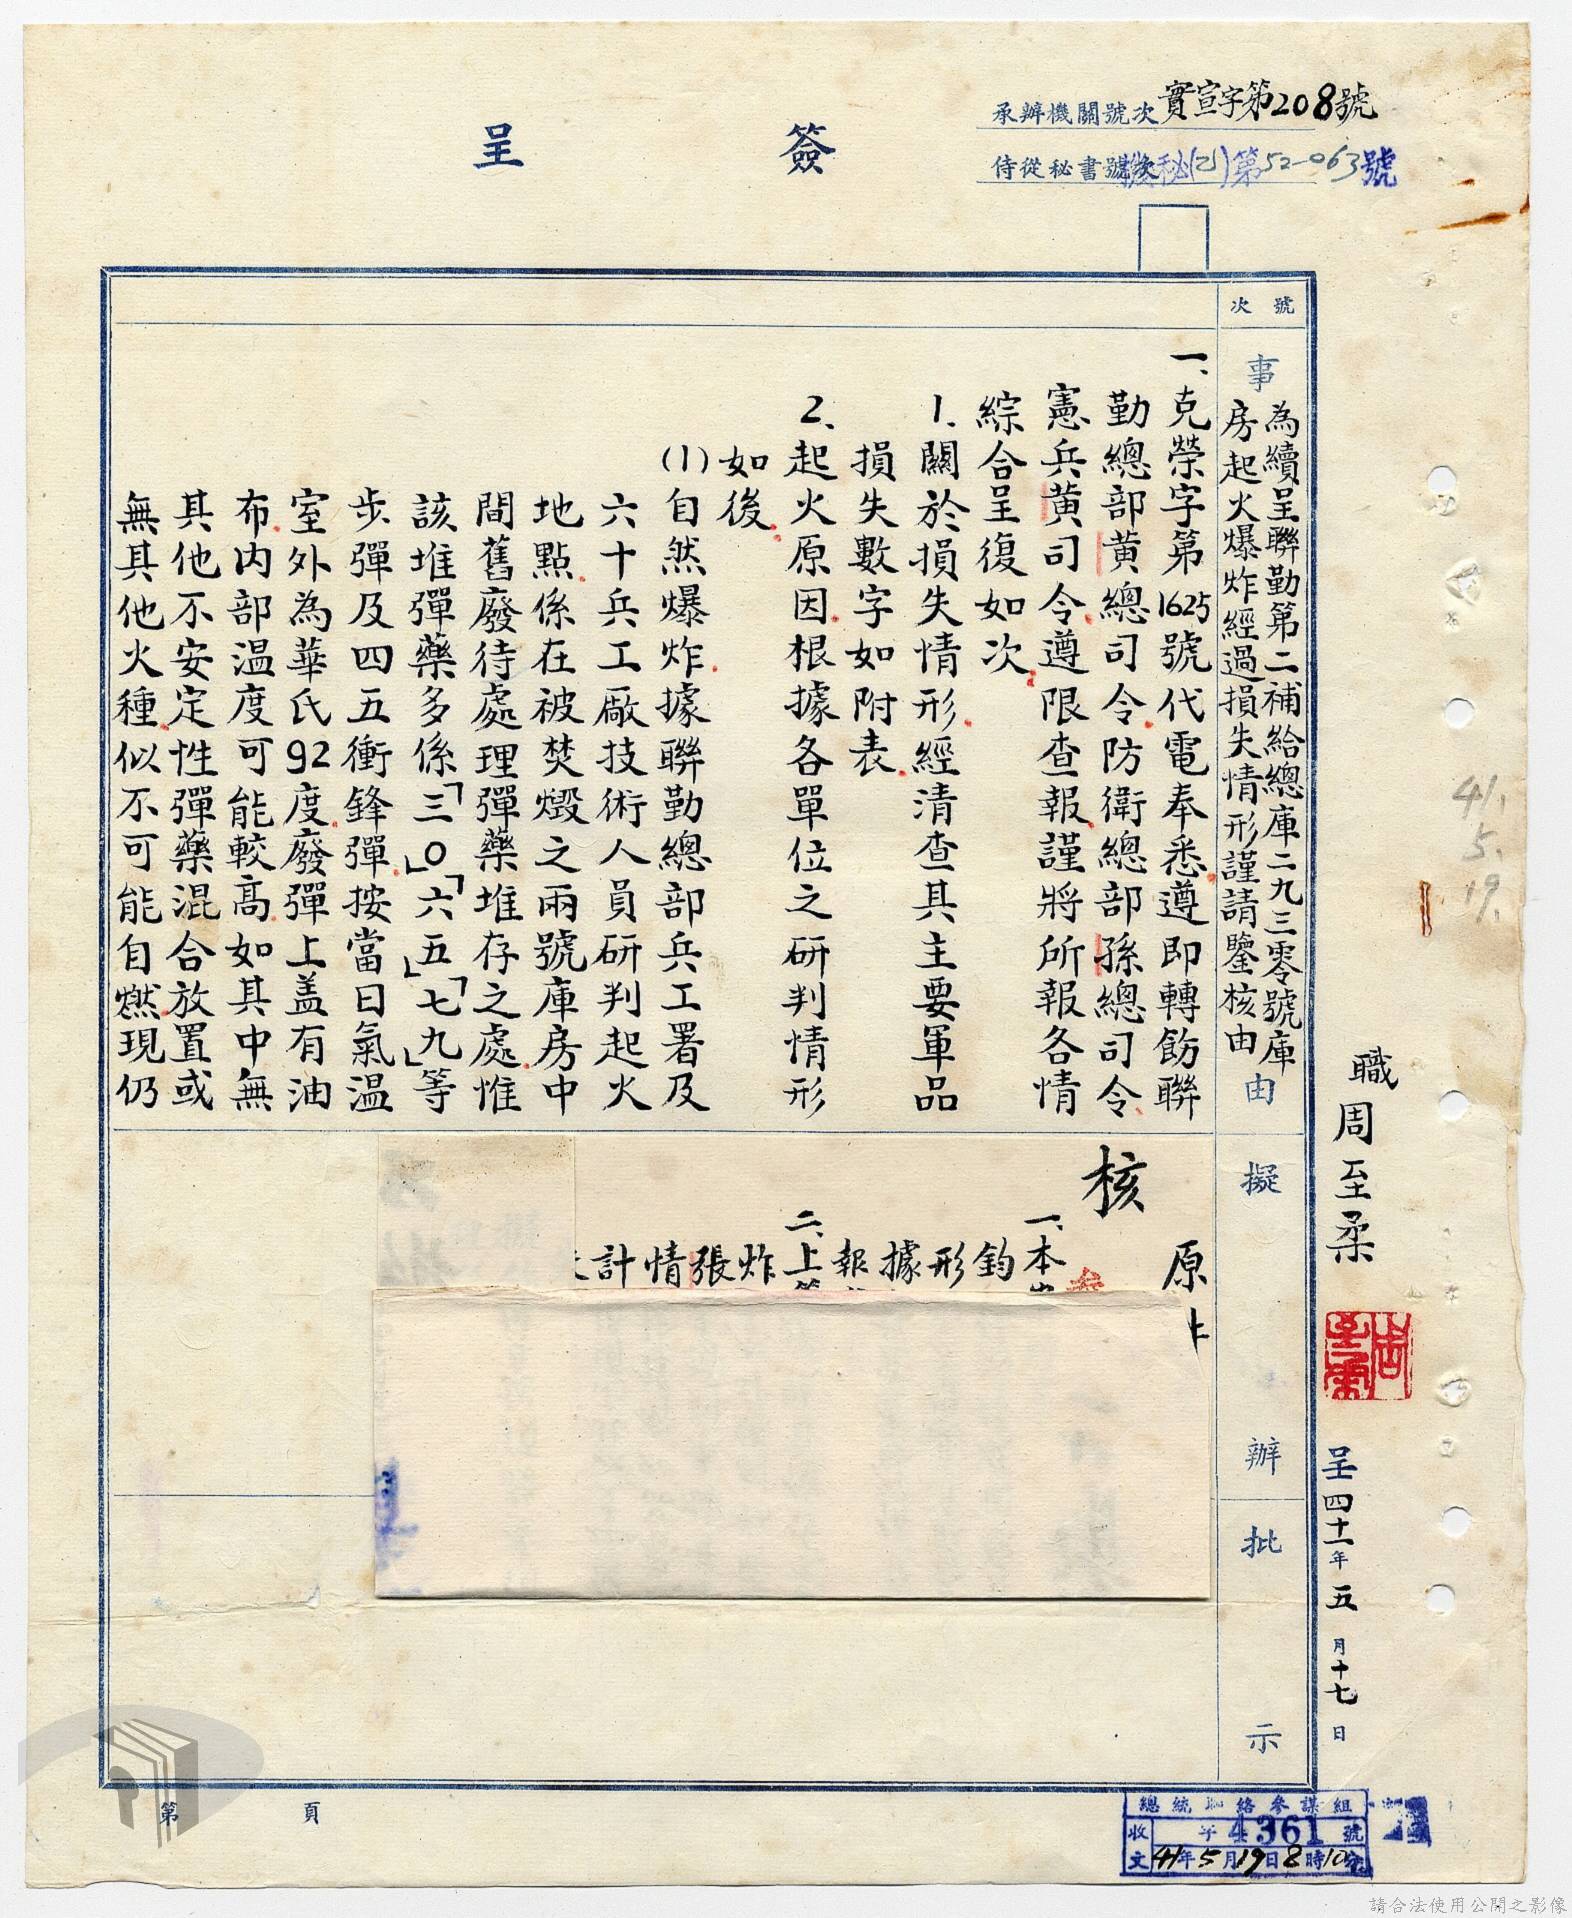 簽呈
承辦機關號次實宣字第208號
侍從秘書號次機秘(乙)第52-063號
號次
事由
為續呈聯勤第二補給總庫二九三零號庫
房起火爆炸經過損失情形謹請鑒核由
一、克榮字第1625號代電奉悉遵即轉飭聯
勤總部黄總司令防衛總部孫總司令
憲兵黄司令遵限查報謹將所報各情
綜合呈復如次
1.關於損失情形經清查其主要軍品
損失數字如附表
2、起火原因根據各單位之研判情形
如後
(1)自然爆炸據聯勤總部兵工署及
六十兵工廠技術人員研判起火
地點係在被焚燬之兩號庫房中
間舊廢待處理彈藥堆存之處惟
該堆彈藥多係「三〇」「六五」「七九」等
步彈及四五衝鋒彈按當日氣溫
室外為華氏92度廢彈上盖有油
布內部溫度可能較高如其中無
其他不安定性彈藥混合放置或
無其他火種似不可能自燃現仍
擬辦
核
原
一、本
鈞
形
據
報
二、上
炸
張
情
計
批示
職周至柔
周至柔
呈四十一年五月十七日
41.5.19.
第 頁
總統聯絡參謀組
收文 字 4361 號
41年5月19日8時10分
請合法使用公開之影像